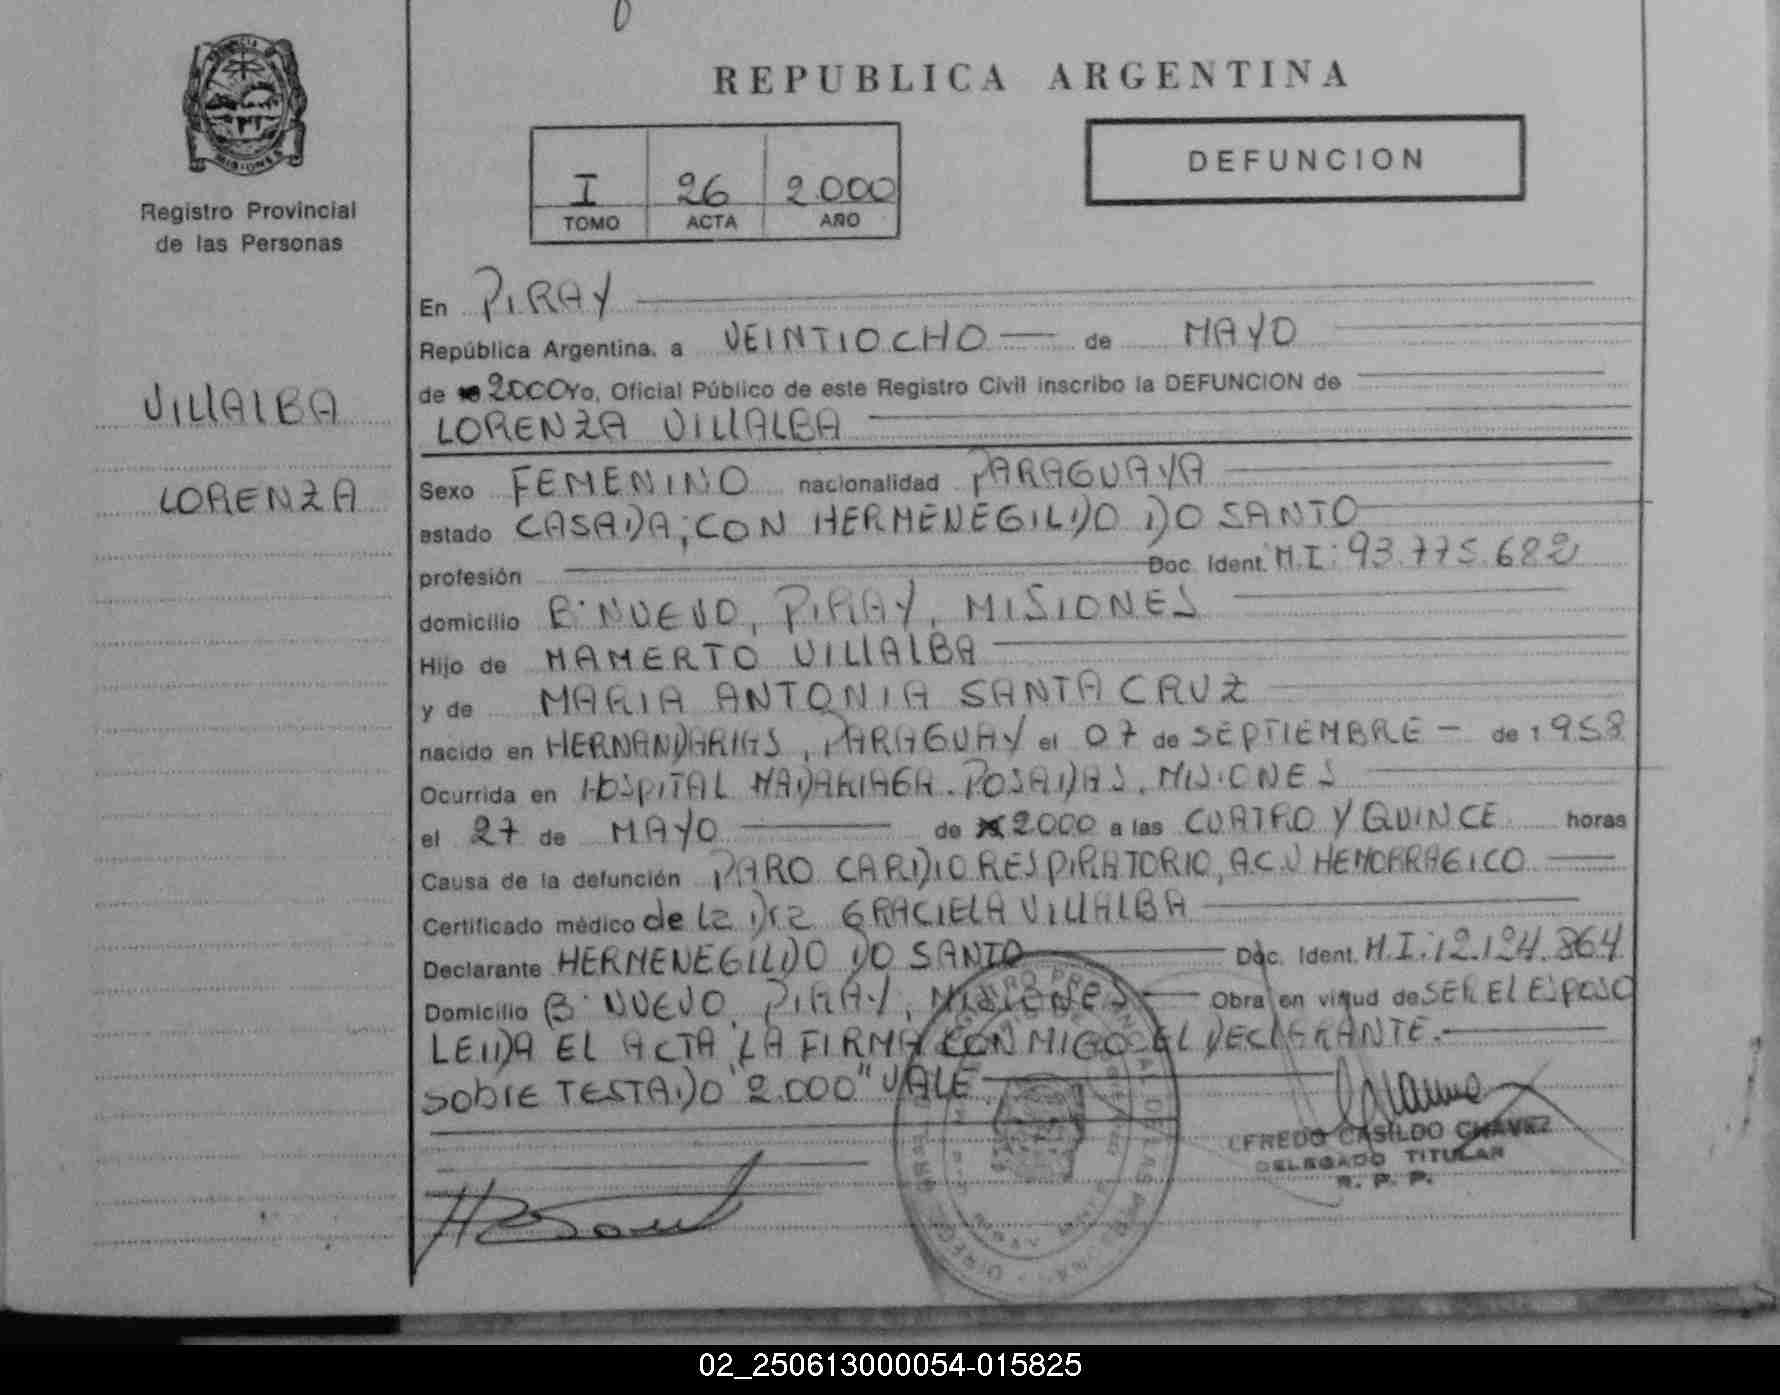 REPUBLICA ARGENTINA
PROVINCIA DE
MISIONES
Registro Provincial
de las Personas
I 26 2.000
TOMO ACTA AÑO
DEFUNCION
VILLALBA
LORENZA
En PIRAY
República Argentina, a VEINTIOCHO de MAYO
de 2000 Yo, Oficial Público de este Registro Civil inscribo la DEFUNCION de
LORENZA VILLALBA
Sexo FEMENINO nacionalidad PARAGUAYA
estado CASADA; CON HERMENEGILDO DO SANTO
profesión Doc. Ident. M.I: 93.775.682
domicilio B: NUEVO, PIRAY, MISIONES
Hijo de MAMERTO VILLALBA
y de MARIA ANTONIA SANTA CRUZ
nacido en HERNANDARIAS, PARAGUAY el 07 de SEPTIEMBRE - de 1958
Ocurrida en HOSPITAL MADARIAGA. POSADAS, MISIONES
el 27 de MAYO de 2000 a las CUATRO Y QUINCE horas
Causa de la defunción PARO CARDIO RESPIRATORIO, A.C.V HEMORRAGICO
Certificado médico de la Dra GRACIELA VILLALBA
Declarante HERMENEGILDO DO SANTO Doc. Ident. M.I: 12.124.864
Domicilio B: NUEVO, PIRAY, MISIONES Obra en virtud de SER EL ESPOSO
LEIDA EL ACTA LA FIRMA CONMIGO EL DECLARANTE.-
sobre TESTADO "2.000" VALE
LFREDO CASILDO CHAVEZ
DELEGADO TITULAR
R. P. P.
02_250613000054-015825